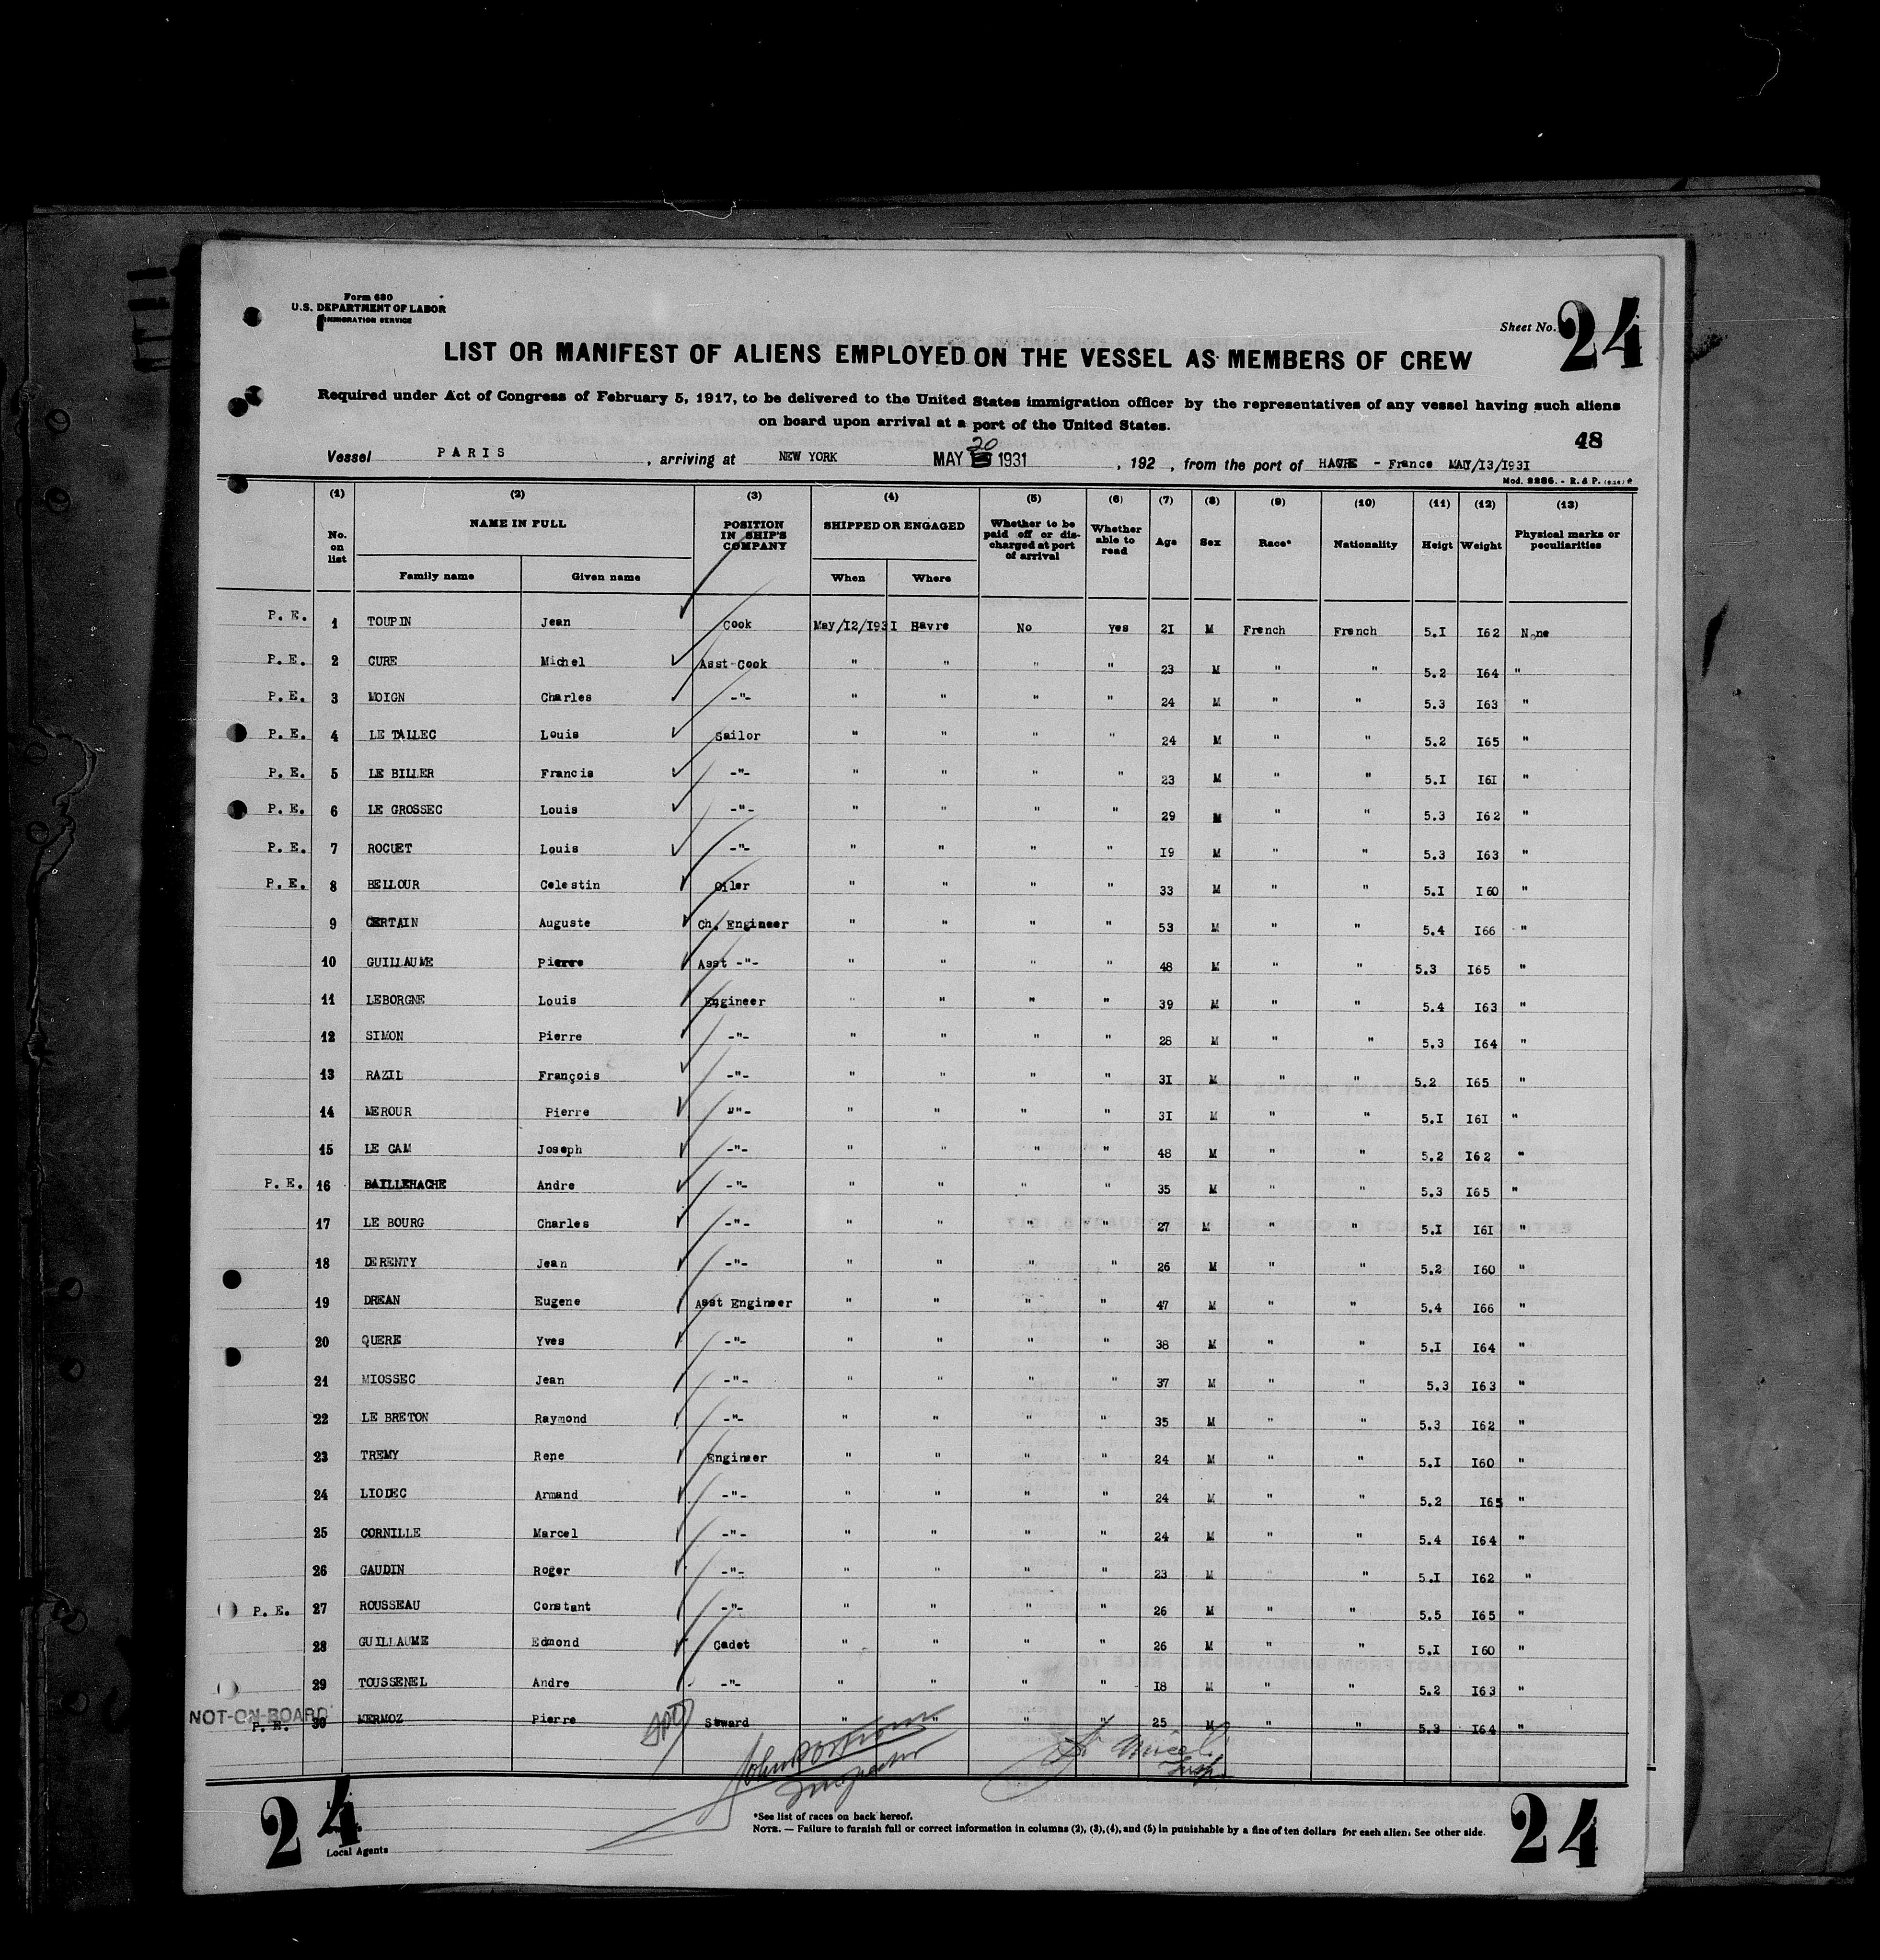 Form 680
U.S. DEPARTMENT OF LABOR
IMMIGRATION SERVICE
Sheet No. 24
LIST OR MANIFEST OF ALIENS EMPLOYED ON THE VESSEL AS MEMBERS OF CREW
Required under Act of Congress of February 5, 1917, to be delivered to the United States immigration officer by the representatives of any vessel having such aliens
on board upon arrival at a port of the United States.
48
Vessel PARIS , arriving at NEW YORK MAY 20 1931 , 192 , from the port of HAVRE - France MAY/13/1931
Mod. 2286. - R. & P.
(1) (2) (3) (4) (5) (6) (7) (8) (9) (10) (11) (12) (13)
No. on list NAME IN FULL POSITION IN SHIP'S COMPANY SHIPPED OR ENGAGED Whether to be paid off or discharged at port of arrival Whether able to read Age Sex Race* Nationality Heigt Weight Physical marks or peculiarities
Family name Given name When Where
P. E. 1 TOUPIN Jean Cook May/12/1931 Havre No Yes 21 M French French 5.I I62 None
P. E. 2 CURE Michel Asst-Cook " " " " 23 M " " 5.2 I64 "
P. E. 3 MOIGN Charles -"- " " " " 24 M " " 5.3 I63 "
P. E. 4 LE TALLEC Louis Sailor " " " " 24 M " " 5.2 I65 "
P. E. 5 LE BILLER Francis -"- " " " " 23 M " " 5.I I6I "
P. E. 6 LE GROSSEC Louis -"- " " " " 29 M " " 5.3 I62 "
P. E. 7 ROGUET Louis -"- " " " " I9 M " " 5.3 I63 "
P. E. 8 BELLOUR Celestin Oiler " " " " 33 M " " 5.I I60 "
9 CERTAIN Auguste Ch. Engineer " " " " 53 M " " 5.4 I66 "
10 GUILLAUME Pierre Asst -"- " " " " 48 M " " 5.3 I65 "
11 LEBORGNE Louis Engineer " " " " 39 M " " 5.4 I63 "
12 SIMON Pierre -"- " " " " 28 M " " 5.3 I64 "
13 RAZIL François -"- " " " " 3I M " " 5.2 I65 "
14 MEROUR Pierre ""- " " " " 3I M " " 5.I I6I "
15 LE CAM Joseph -"- " " " " 48 M " " 5.2 I62 "
P. E. 16 BAILLEHACHE Andre -"- " " " " 35 M " " 5.3 I65 "
17 LE BOURG Charles -"- " " " " 27 M " " 5.I I6I "
18 DERENTY Jean -"- " " " " 26 M " " 5.2 I60 "
19 DREAN Eugene Asst Engineer " " " " 47 M " " 5.4 I66 "
20 QUERE Yves -"- " " " " 38 M " " 5.I I64 "
21 MIOSSEC Jean -"- " " " " 37 M " " 5.3 I63 "
22 LE BRETON Raymond -"- " " " " 35 M " " 5.3 I62 "
23 TREMY Rene Engineer " " " " 24 M " " 5.I I60 "
24 LIODEC Armand -"- " " " " 24 M " " 5.2 I65 "
25 CORNILLE Marcel -"- " " " " 24 M " " 5.4 I64 "
26 GAUDIN Roger -"- " " " " 23 M " " 5.I I62 "
P. E. 27 ROUSSEAU Constant -"- " " " " 26 M " " 5.5 I65 "
28 GUILLAUME Edmond Cadet " " " " 26 M " " 5.I I60 "
29 TOUSSENEL Andre -"- " " " " I8 M " " 5.2 I63 "
NOT-ON-BOARD
P. E. 30 MERMOZ Pierre Steward " " " " 25 M " " 5.3 I64 "
Inspector
Insp.
24
Local Agents
*See list of races on back hereof.
NOTE. — Failure to furnish full or correct information in columns (2), (3), (4), and (5) in punishable by a fine of ten dollars for each alien. See other side.
24